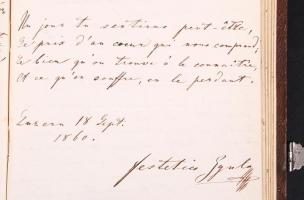 Un jour tu sentiras peut-être,
Le prix d'un coeur qui nous comprend,
Le bien qu'on trouve à le connaître,
Et ce qu'on souffre, en le perdant.
Luzern 18 Sept.
1860.
Festetics Gyula